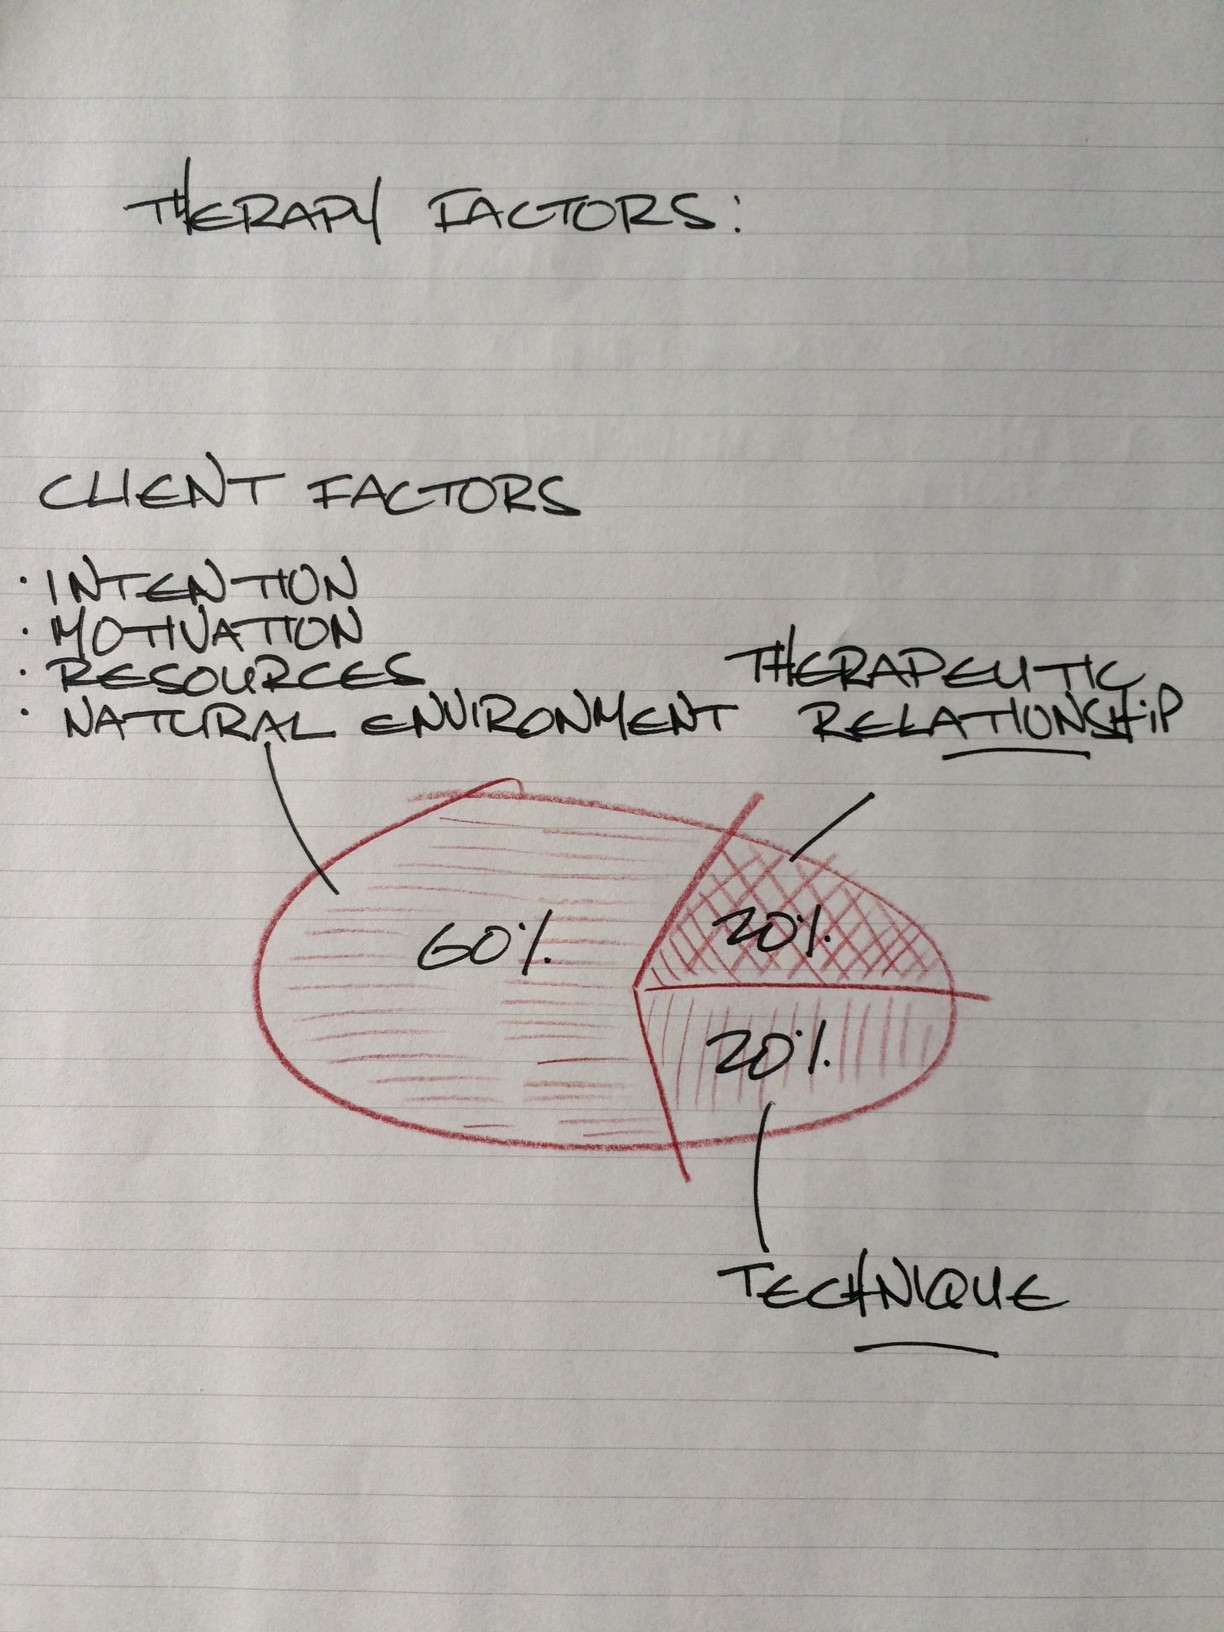 THERAPY FACTORS:
CLIENT FACTORS
· INTENTION
· MOTIVATION
· RESOURCES
· NATURAL ENVIRONMENT
THERAPEUTIC
RELATIONSHIP
60%
20%
20%
TECHNIQUE